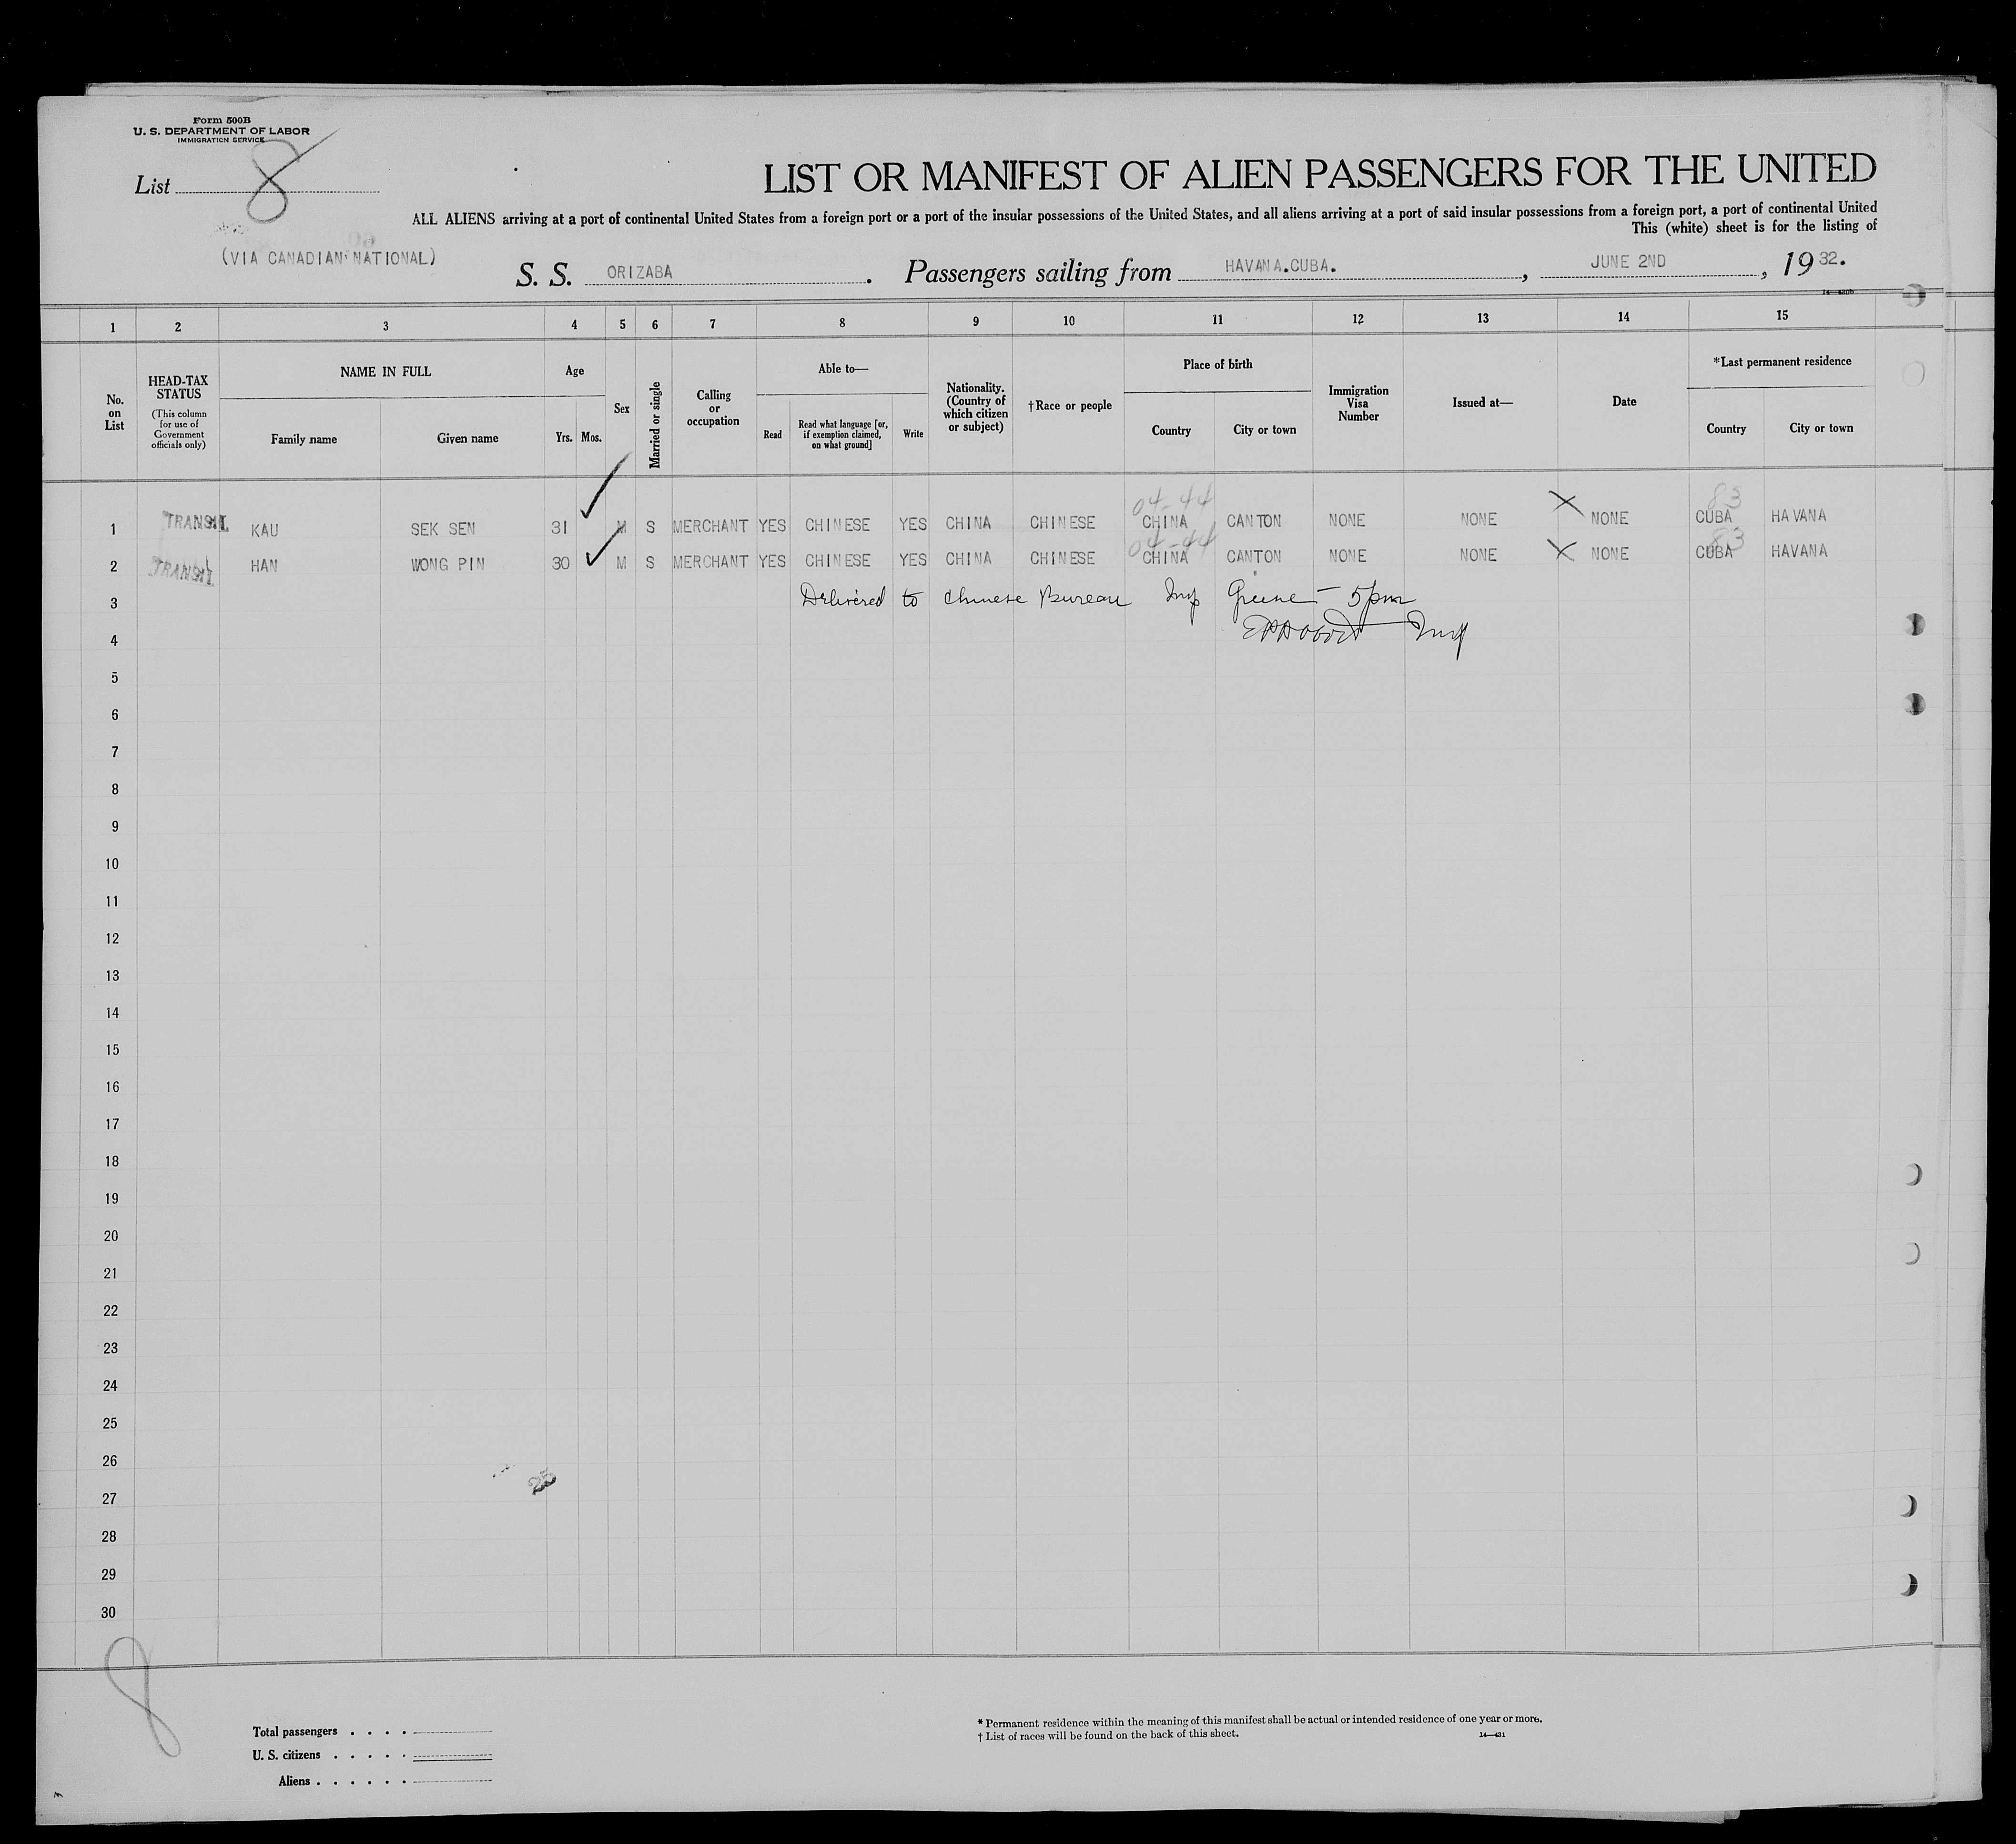 Form 500B
U. S. DEPARTMENT OF LABOR
IMMIGRATION SERVICE
List 8
LIST OR MANIFEST OF ALIEN PASSENGERS FOR THE UNITED
ALL ALIENS arriving at a port of continental United States from a foreign port or a port of the insular possessions of the United States, and all aliens arriving at a port of said insular possessions from a foreign port, a port of continental United
This (white) sheet is for the listing of
(VIA CANADIAN NATIONAL)
S. S. ORIZABA. Passengers sailing from HAVANA.CUBA., JUNE 2ND, 1932.
14—420b
1 2 3 4 5 6 7 8 9 10 11 12 13 14 15
No. on List
HEAD-TAX STATUS
(This column for use of Government officials only)
NAME IN FULL
Family name
Given name
Age
Yrs. Mos.
Sex
Married or single
Calling or occupation
Able to—
Read
Read what language [or, if exemption claimed, on what ground]
Write
Nationality. (Country of which citizen or subject)
†Race or people
Place of birth
Country
City or town
Immigration Visa Number
Issued at—
Date
*Last permanent residence
Country
City or town
04-44 83
1 TRANSIT KAU SEK SEN 31 M S MERCHANT YES CHINESE YES CHINA CHINESE CHINA CANTON NONE NONE NONE CUBA HAVANA
04-44 83
2 TRANSIT HAN WONG PIN 30 M S MERCHANT YES CHINESE YES CHINA CHINESE CHINA CANTON NONE NONE NONE CUBA HAVANA
3 Delivered to Chinese Bureau Insp Greene - 5pm
4 Insp
5
6
7
8
9
10
11
12
13
14
15
16
17
18
19
20
21
22
23
24
25
26
25
27
28
29
30
8
Total passengers . . . .
U. S. citizens . . . . .
Aliens . . . . . .
* Permanent residence within the meaning of this manifest shall be actual or intended residence of one year or more.
† List of races will be found on the back of this sheet.
14—431